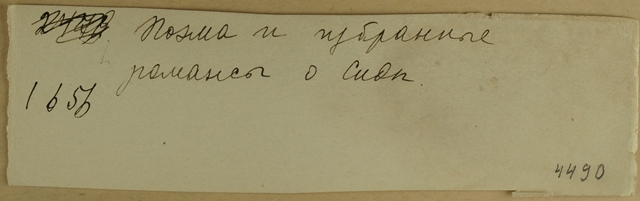 Поэма и избранные
романсы о Сиде.
1656
4490